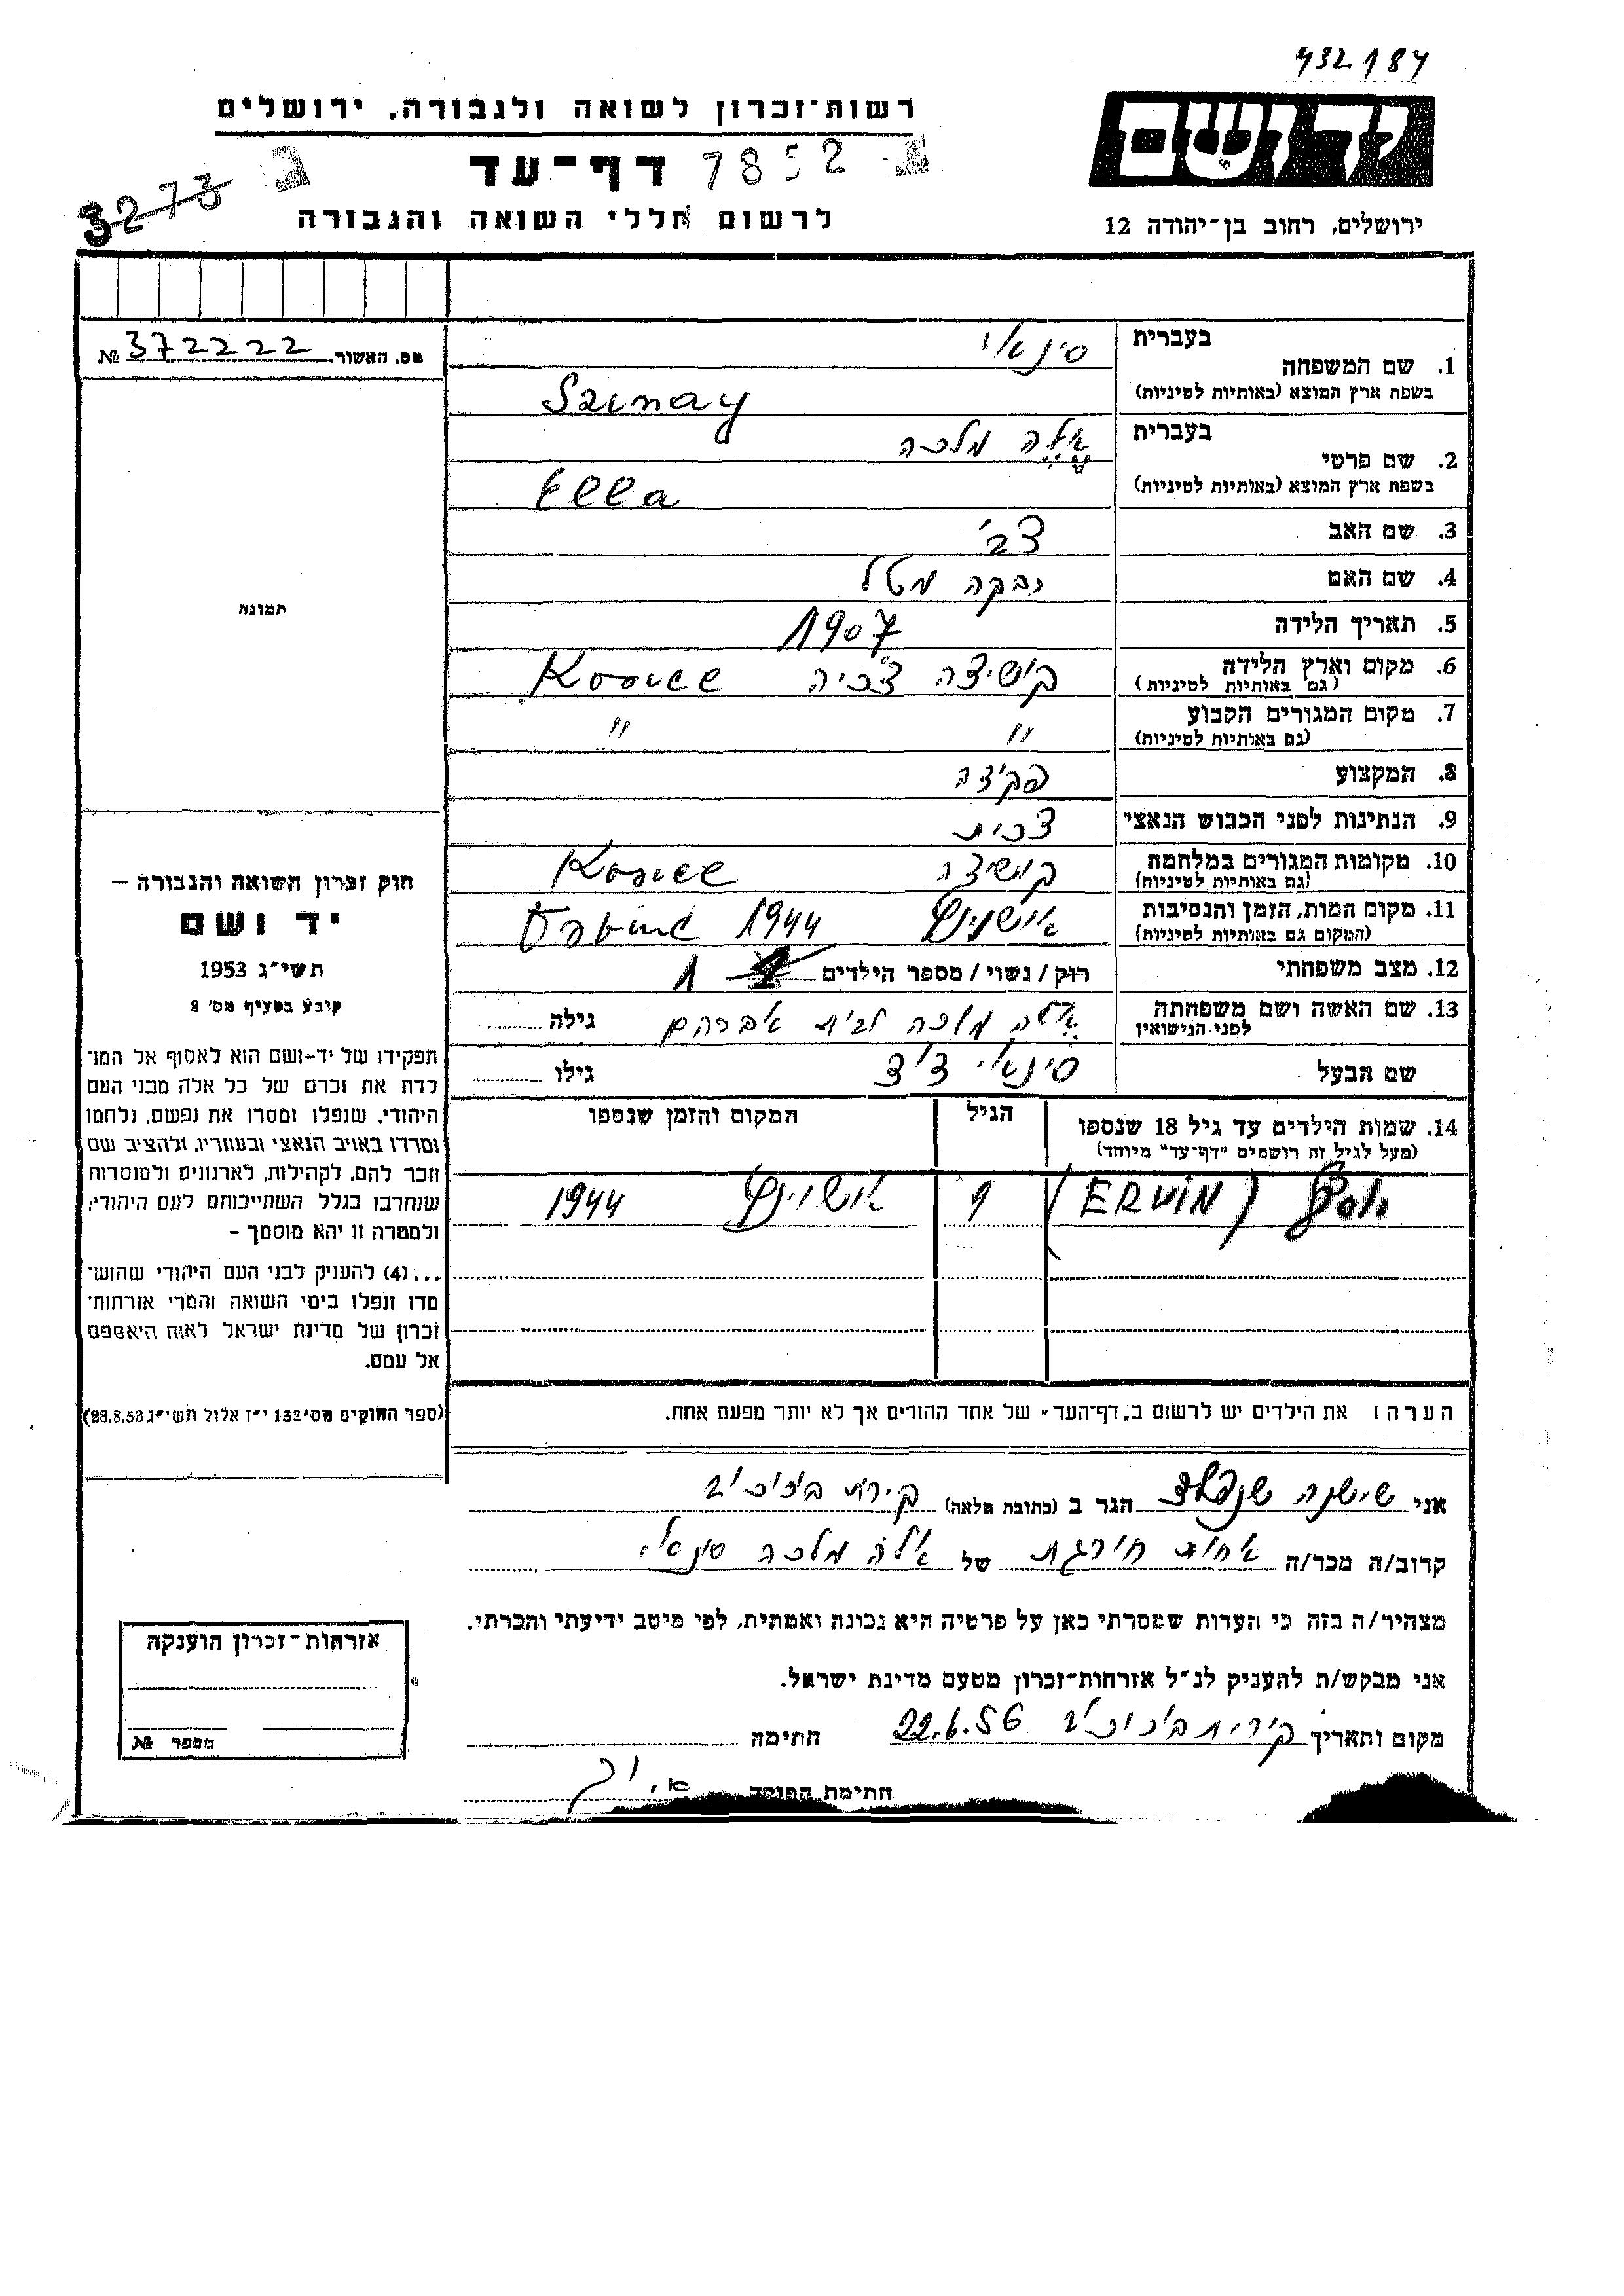 432184
רשות־זכרון לשואה ולגבורה, ירושלים
ידושם
דף־עד 7852
3273
לרשום חללי השואה והגבורה
ירושלים, רחוב בן־יהודה 12
מס. האשור № 372222
1. שם המשפחה
בעברית סינאי
בשפת ארץ המוצא (באותיות לטיניות) Szinay
2. שם פרטי
בעברית אלה מלכה
בשפת ארץ המוצא (באותיות לטיניות) Ella
3. שם האב צבי
4. שם האם
5. תאריך הלידה 1907
6. מקום וארץ הלידה קושיצה צ'כיה Kosice
(גם באותיות לטיניות)
7. מקום המגורים הקבוע " "
(גם באותיות לטיניות)
8. המקצוע פקידה
9. הנתינות לפני הכבוש הנאצי צכית
10. מקומות המגורים במלחמה קושיצה Kosice
(גם באותיות לטיניות)
11. מקום המות, הזמן והנסיבות 1944
(המקום גם באותיות לטיניות)
12. מצב משפחתי רוק/נשוי/מספר הילדים 1
13. שם האשה ושם משפחתה אלה מלכה לבית אברהם גילה
לפני הנישואין
שם הבעל סינאי גילו
14. שמות הילדים עד גיל 18 שנספו הגיל המקום והזמן שנספו
(מעל לגיל זה רושמים "דף־עד" מיוחד)
(ERVIN) 9 אושוינץ 1944
הערה: את הילדים יש לרשום ב„דף־העד" של אחד ההורים אך לא יותר מפעם אחת.
אני שושנה הגר ב (כתובת מלאה) קרית ביאליק
קרוב/ה מכר/ה אחות חורגת של אלה מלכה סינאי
מצהיר/ה בזה כי העדות שמסרתי כאן על פרטיה היא נכונה ואמתית, לפי מיטב ידיעתי והכרתי.
אני מבקש/ת להעניק לנ״ל אזרחות־זכרון מטעם מדינת ישראל.
מקום ותאריך קרית ביאליק 22.6.56 חתימה
חתימת הפוקד
תמונה
חוק זכרון השואה והגבורה –
יד ושם
תשי״ג 1953
קובע בסעיף מס' 2
תפקידו של יד־ושם הוא לאסוף אל המו־
לדת את זכרם של כל אלה מבני העם
היהודי, שנפלו ומסרו את נפשם, נלחמו
ומרדו באויב הנאצי ובעוזריו, ולהציב שם
וזכר להם, לקהילות, לארגונים ולמוסדות
שנחרבו בגלל השתייכותם לעם היהודי;
ולמטרה זו יהא מוסמך –
...(4) להעניק לבני העם היהודי שהוש־
מדו ונפלו בימי השואה והמרי אזרחות־
זכרון של מדינת ישראל לאות היאספם
אל עמם.
(ספר החוקים מס' 132 י״ז אלול תשי״ג 28.8.53)
אזרחות־זכרון הוענקה
מספר №